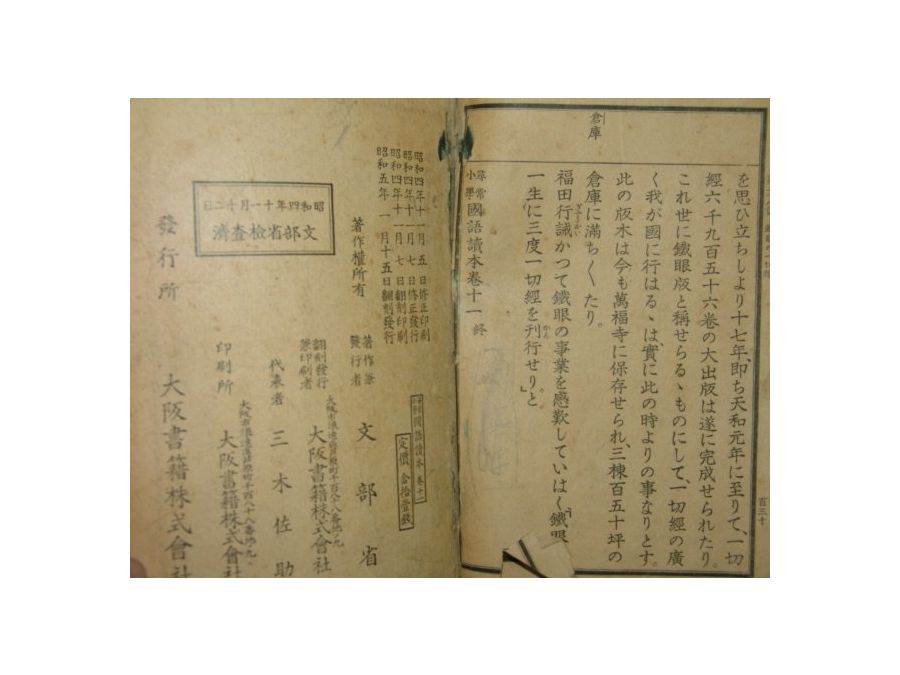 倉庫
を思ひ立ちしより十七年、即ち天和元年に至りて、一切
經六千九百五十六卷の大出版は遂に完成せられたり。
これ世に鐵眼版と稱せらるゝものにして、一切經の廣
く我が國に行はるゝは、實に此の時よりの事なりとす。
此の版木は今も萬福寺に保存せられ、三棟百五十坪の
倉庫に滿ち〱たり。
福田行誡かつて鐵眼の事業を感歎していはく、「鐵眼
一生に三度一切經を刊行せり。」と
尋常小學國語讀本卷十一 終
百三十
昭和四年十一月 五 日修正印刷
昭和四年十一月 七 日修正發行
昭和四年十一月 七 日翻刻印刷
昭和五年 一 月十五日翻刻發行
國語讀本 卷十一
定價 金拾壹錢
著作權所有
著作兼發行者 文部省
翻刻發行兼印刷者
大阪書籍株式會社
代表者 三木佐助
印刷所
大阪書籍株式會社
昭和四年十一月十二日
文部省檢查濟
發行所 大阪書籍株式會社